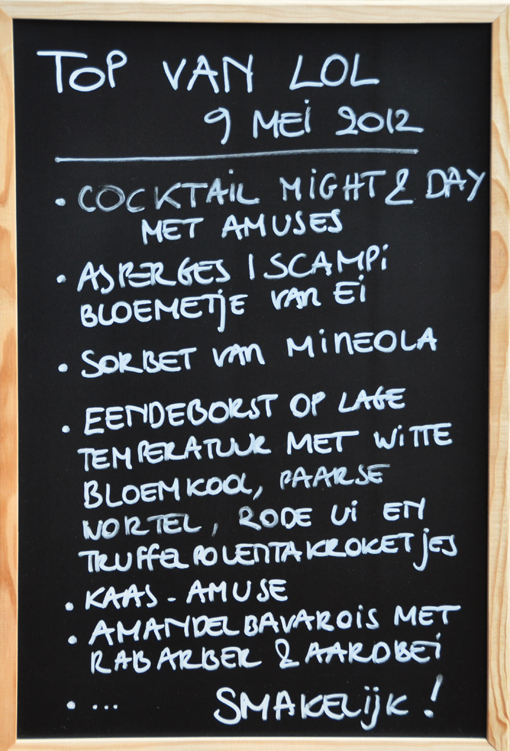 TOP VAN LOL
9 MEI 2012
• COCKTAIL MIGHT & DAY
MET AMUSES
• ASPERGES | SCAMPI
BLOEMETJE VAN EI
• SORBET VAN MINEOLA
• EENDEBORST OP LAGE
TEMPERATUUR MET WITTE
BLOEMKOOL, PAARSE
WORTEL, RODE UI EN
TRUFFELPOLENTAKROKETJES
• KAAS - AMUSE
• AMANDELBAVAROIS MET
RABARBER & AARDBEI
• ... SMAKELIJK!